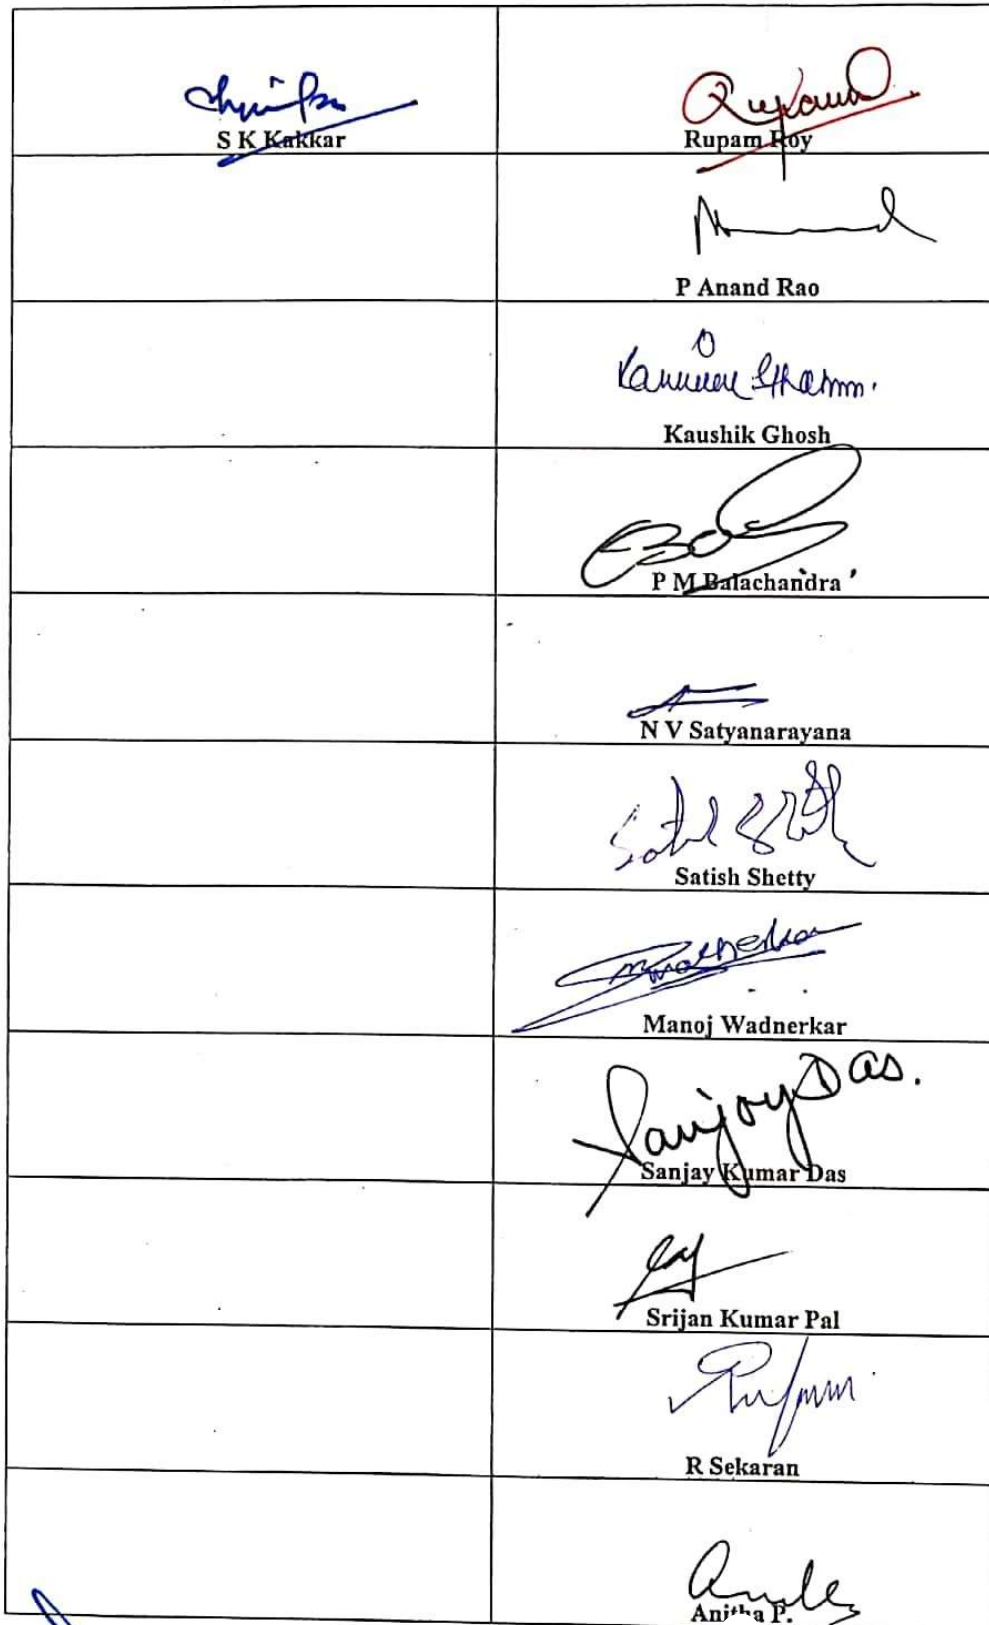 S K Kakkar
Rupam
Rupam Roy
P Anand Rao
Kaushik Ghosh
P M Balachandra
N V Satyanarayana
Satish Shetty
Mwadnerkar
Manoj Wadnerkar
Sanjoy Das.
Sanjay Kumar Das
Srijan Kumar Pal
R Sekaran
Anitha P.